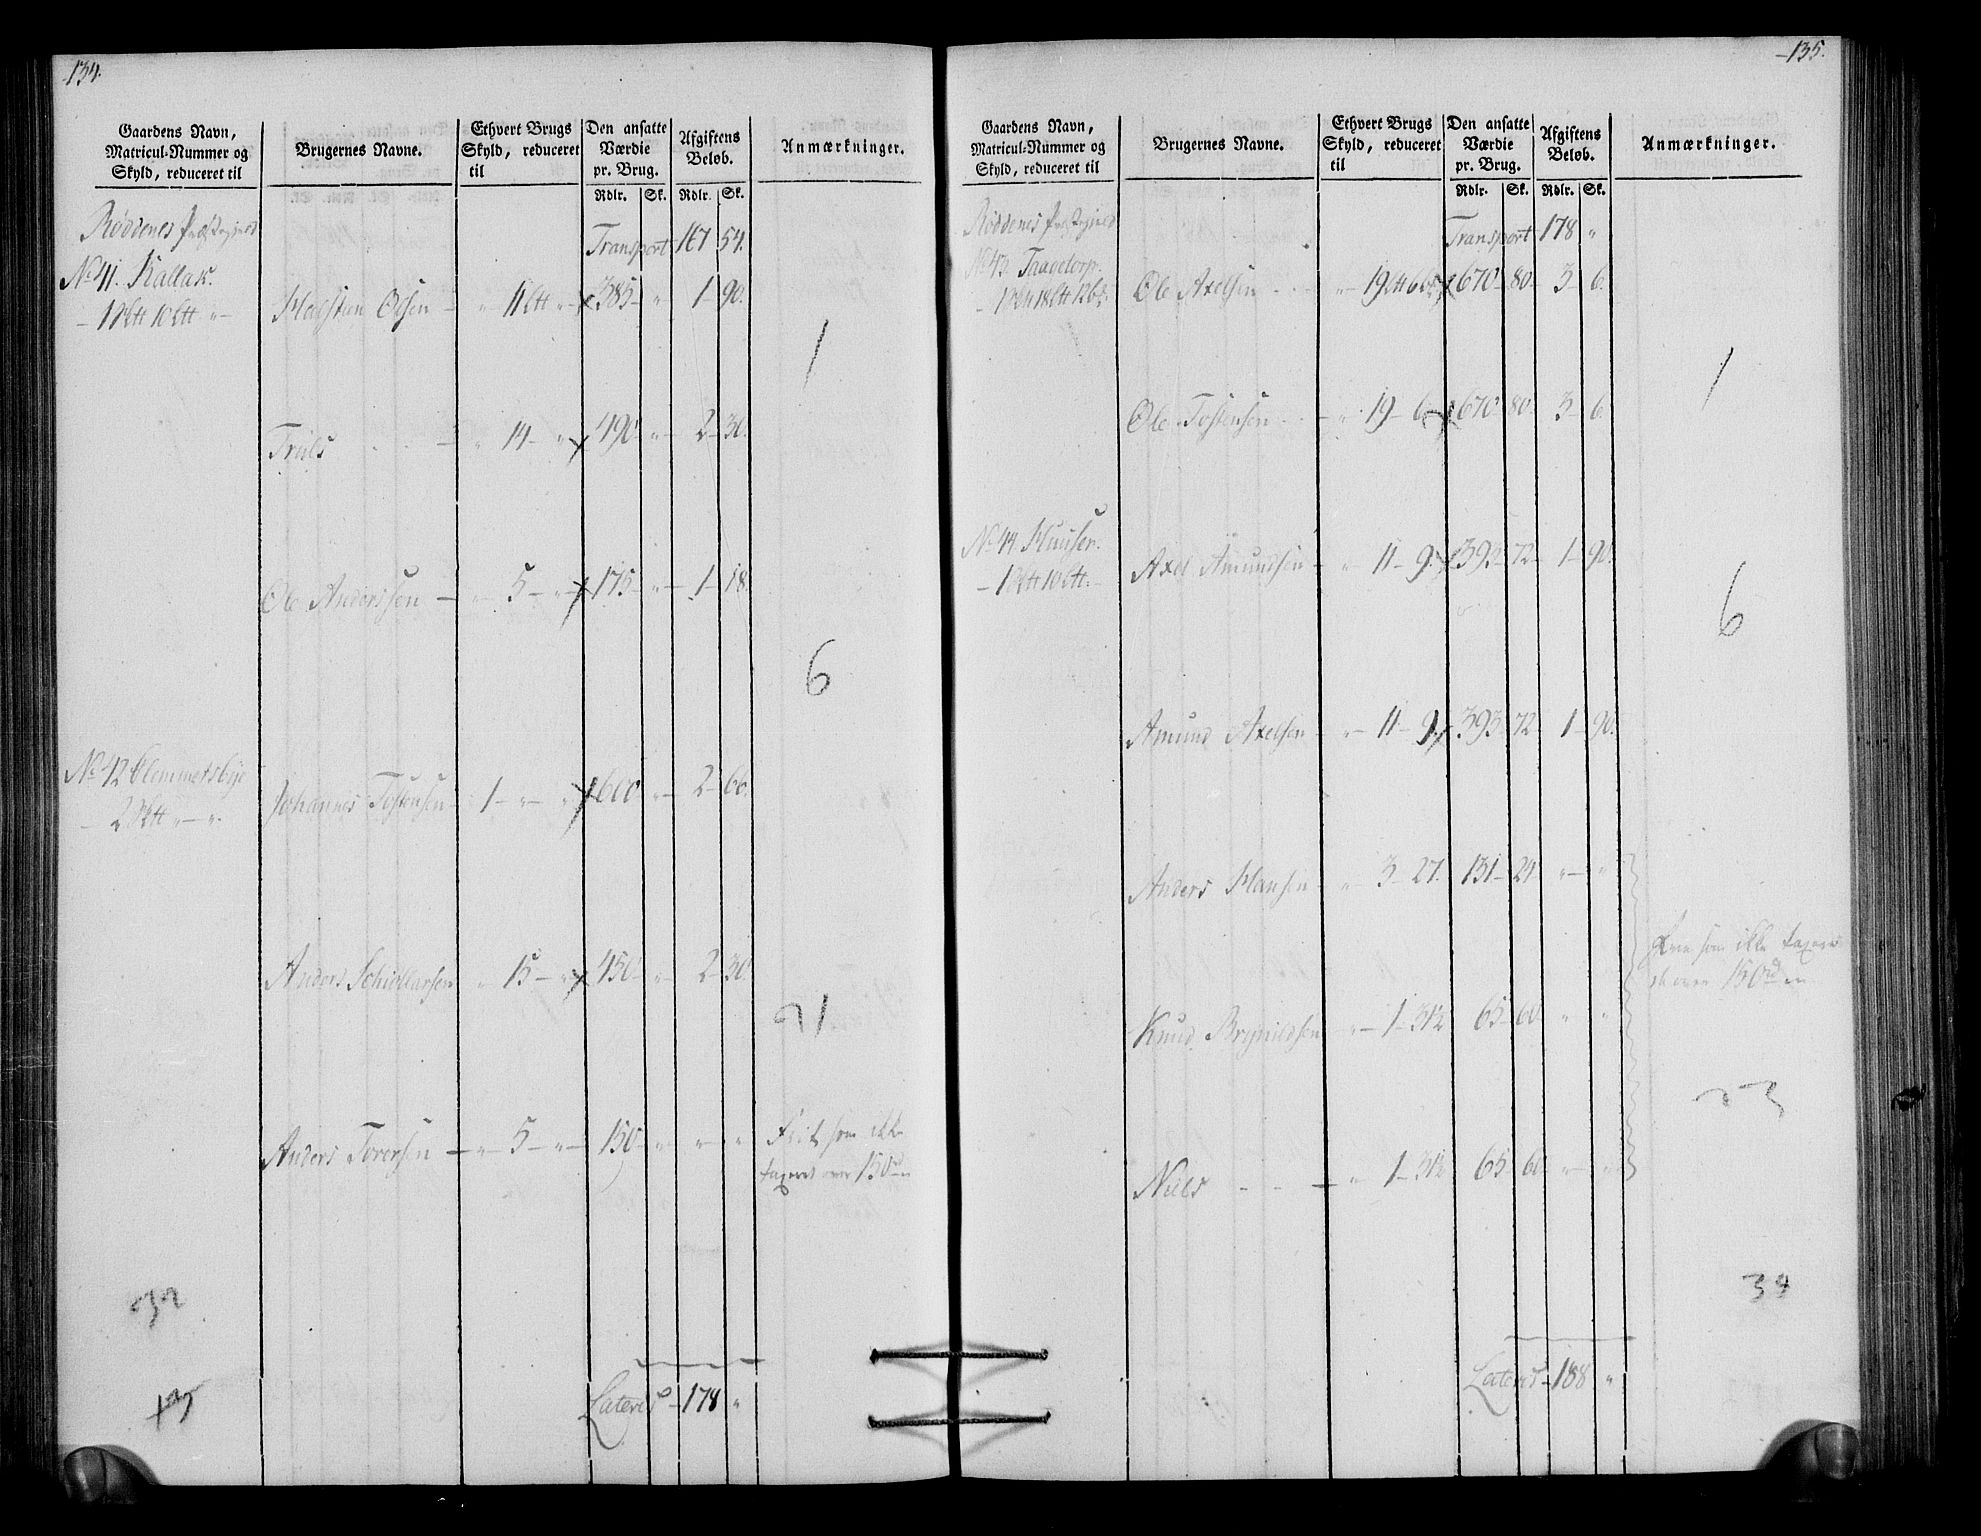 134.
Gaardens Navn, Matricul-Nummer og Skyld, reduceret til
Brugernes Navne.
Ethvert Brugs Skyld, reduceret til
Den ansatte Værdie pr. Brug.
Afgiftens Beløb.
Anmærkninger.
Rdlr. Sk. Rdlr. Sk.
Røddenes Præstegield
Transport 167 54.
No 41. Kallak.
Halstan Olsen - " 11 ltt " - 385 - " 1 - 90.
1
Truls - " 14 - " 490 - " 2 - 30.
Ole Anderssen - " 5 - " 175 - " 1 - 18.
6
No 42 Clemmetsbye
Johannes Tostensen 1 - " - " 600 " - 2 - 66.
Anders " 15 - " 450 " 2 - 30
21
Anders Torersen - " 5 - " 150 - " " "
Frit som ikke
taxeret over 150 rd
32
Lateris - 178 "
135.
Gaardens Navn, Matricul-Nummer og Skyld, reduceret til
Brugernes Navne.
Ethvert Brugs Skyld, reduceret til
Den ansatte Værdie pr. Brug.
Afgiftens Beløb.
Anmærkninger.
Rdlr. Sk. Rdlr. Sk.
Røddenes Præstegield
Transport 178 "
No 43. Taagetorp.
Ole Axelsen " - 19 ltt 6 670 - 80 - 3 - 6.
1
Ole Tostensen - " 19 - 6 670 80 - 3 - 6.
No 44 Huuser.
Axel Amundsen - " 11 - 9 393 - 72 - 1 - 90.
6
Amund Axelsen - " 11 - 9 393 72 1 - 90.
Anders Hansen - " 3 - 27. 131 - 24 " "
som ikke taxeret
over 150 rd
Knud Brynildsen " 1 - 31½ 65 - 60 " "
33
Niels - - " 1 - 31½ 65 60 " "
34
Lateris - 188 "